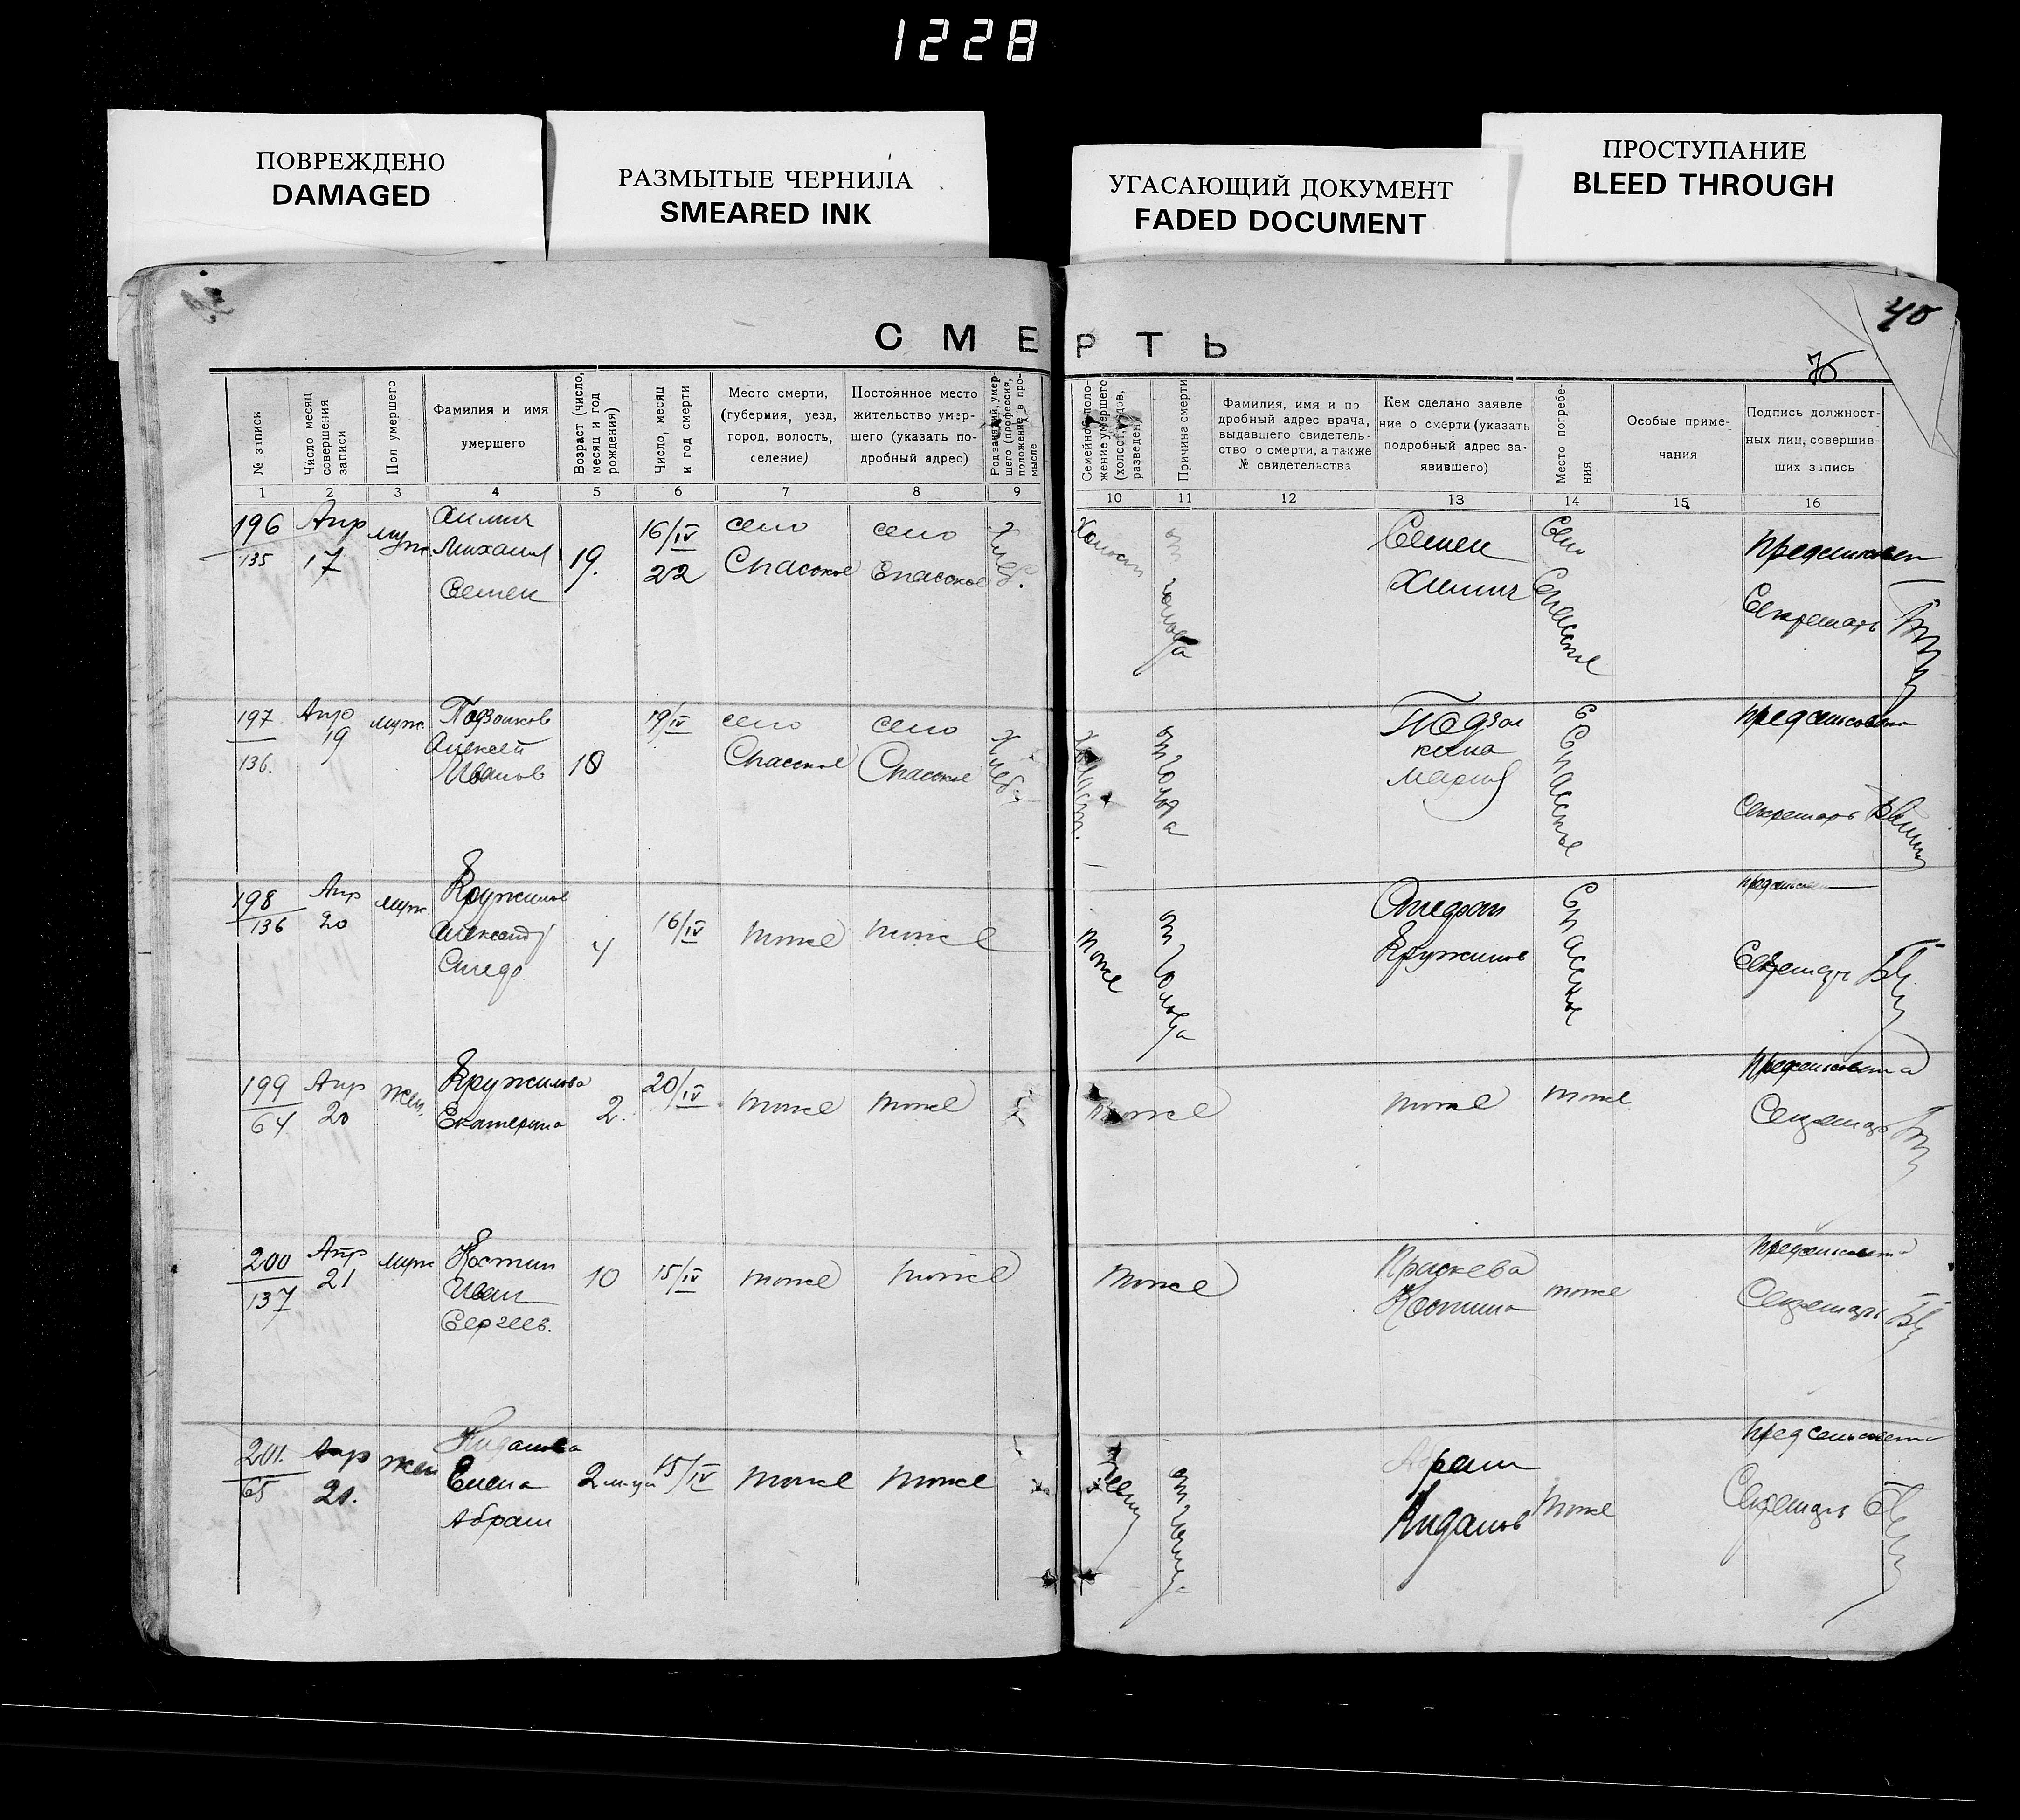 1228
ПОВРЕЖДЕНО
DAMAGED
РАЗМЫТЫЕ ЧЕРНИЛА
SMEARED INK
УГАСАЮЩИЙ ДОКУМЕНТ
FADED DOCUMENT
ПРОСТУПАНИЕ
BLEED THROUGH
40
СМЕРТЬ
№ записи
Число месяц
совершения
записи
Пол умершего
Фамилия и имя
умершего
Возраст (число,
месяц и год
рождения)
Число, месяц
и год смерти
Место смерти,
(губерния, уезд,
город, волость,
селение)
Постоянное место
жительство умер-
шего (указать по-
дробный адрес)
Род занятий, умер-
шего (профессия,
положение в про-
мысле
Семейное поло-
жение умершего
(холост, вдов,
разведен)
Причина смерти
Фамилия, имя и по
дробный адрес врача,
выдавшего свидетель-
ство о смерти, а также
№ свидетельства
Кем сделано заявле
ние о смерти (указать
подробный адрес за-
явившего)
Место погребе-
ния
Особые приме-
чания
Подпись должност-
ных лиц, совершив-
ших запись
1 2 3 4 5 6 7 8 9 10 11 12 13 14 15 16
196
135
Апр
17
муж
Михаил
Семен
19.
16/IV
22
село
Спасское
село
Спасское
Хлеб.
Холост
от голода
Семен
Химич
Село
Спасское
Секретарь
197
136.
Апр
19
муж
Алексей
Иванов
18
19/IV
село
Спасское
село
Спасское
Хлеб.
Холост.
от голода
Мария
С Спасское
Секретарь
198
136
Апр
20
муж
Кружилов
Александр
4
16/IV
тоже
тоже
тоже
от голода
Кружилов
Спасское
Секретарь
199
64
Апр
20
жен.
Кружилова
Екатерина
2.
20/IV
тоже
тоже
тоже
тоже
тоже
Предсельсовета
Секретарь
200
137
Апр
21
муж
Костин
Иван
Сергеев.
10
15/IV
тоже
тоже
тоже
Праскева
Костина
тоже
Предсельсовета
Секретарь
201.
65
Апр
21.
жен
Елена
Абрам
2 м-ца
15/IV
тоже
тоже
от голода
Абрам
тоже
Предсельсовета
Секретарь